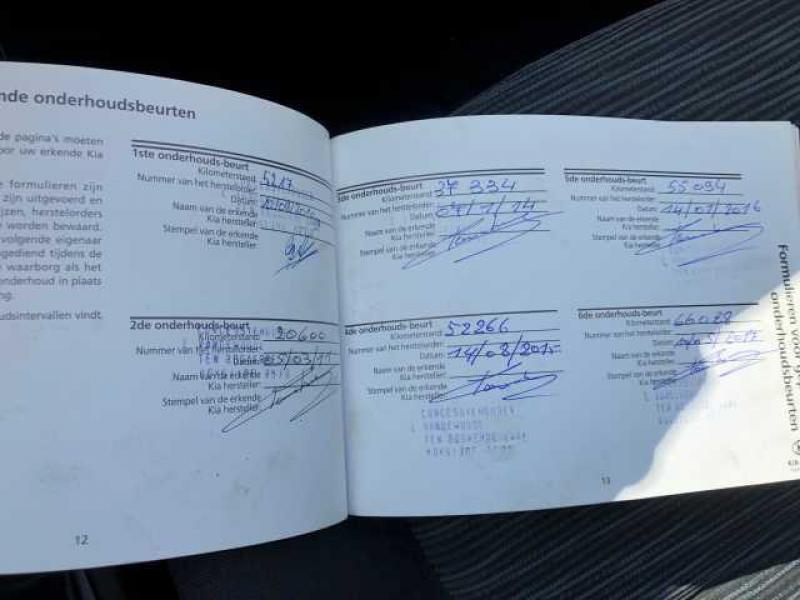 nde onderhoudsbeurten
de pagina's moeten
oor uw erkende Kia
e formulieren zijn
zijn uitgevoerd en
jzen, herstelorders
e worden bewaard.
volgende eigenaar
gediend tijdens de
e waarborg als het
onderhoud in plaats
ng.
udsintervallen vindt
1ste onderhouds-beurt
Kilometerstand: 5217
Nummer van het herstelorder:
Datum:
Naam van de erkende
Kia hersteller:
Stempel van de erkende
Kia hersteller:
2de onderhouds-beurt
Kilometerstand: 20600
Nummer van het herstelorder:
Datum: 05/03/11
Naam van de erkende
Kia hersteller:
Stempel van de erkende
Kia hersteller:
12
3de onderhouds-beurt
Kilometerstand: 37 334
Nummer van het herstelorder:
Datum: 07/1/14
Naam van de erkende
Kia hersteller:
Stempel van de erkende
Kia hersteller:
4de onderhouds-beurt
Kilometerstand: 52266
Nummer van het herstelorder:
Datum: 14/08/2015
Naam van de erkende
Kia hersteller:
Stempel van de erkende
Kia hersteller:
5de onderhouds-beurt
Kilometerstand: 55094
Nummer van het herstelorder:
Datum: 14/01/2016
Naam van de erkende
Kia hersteller:
Stempel van de erkende
Kia hersteller:
6de onderhouds-beurt
Kilometerstand: 66028
Nummer van het herstelorder:
Datum:
Naam van de erkende
Kia hersteller:
Stempel van de erkende
Kia hersteller:
13
Formulieren voor
onderhoudsbeurten